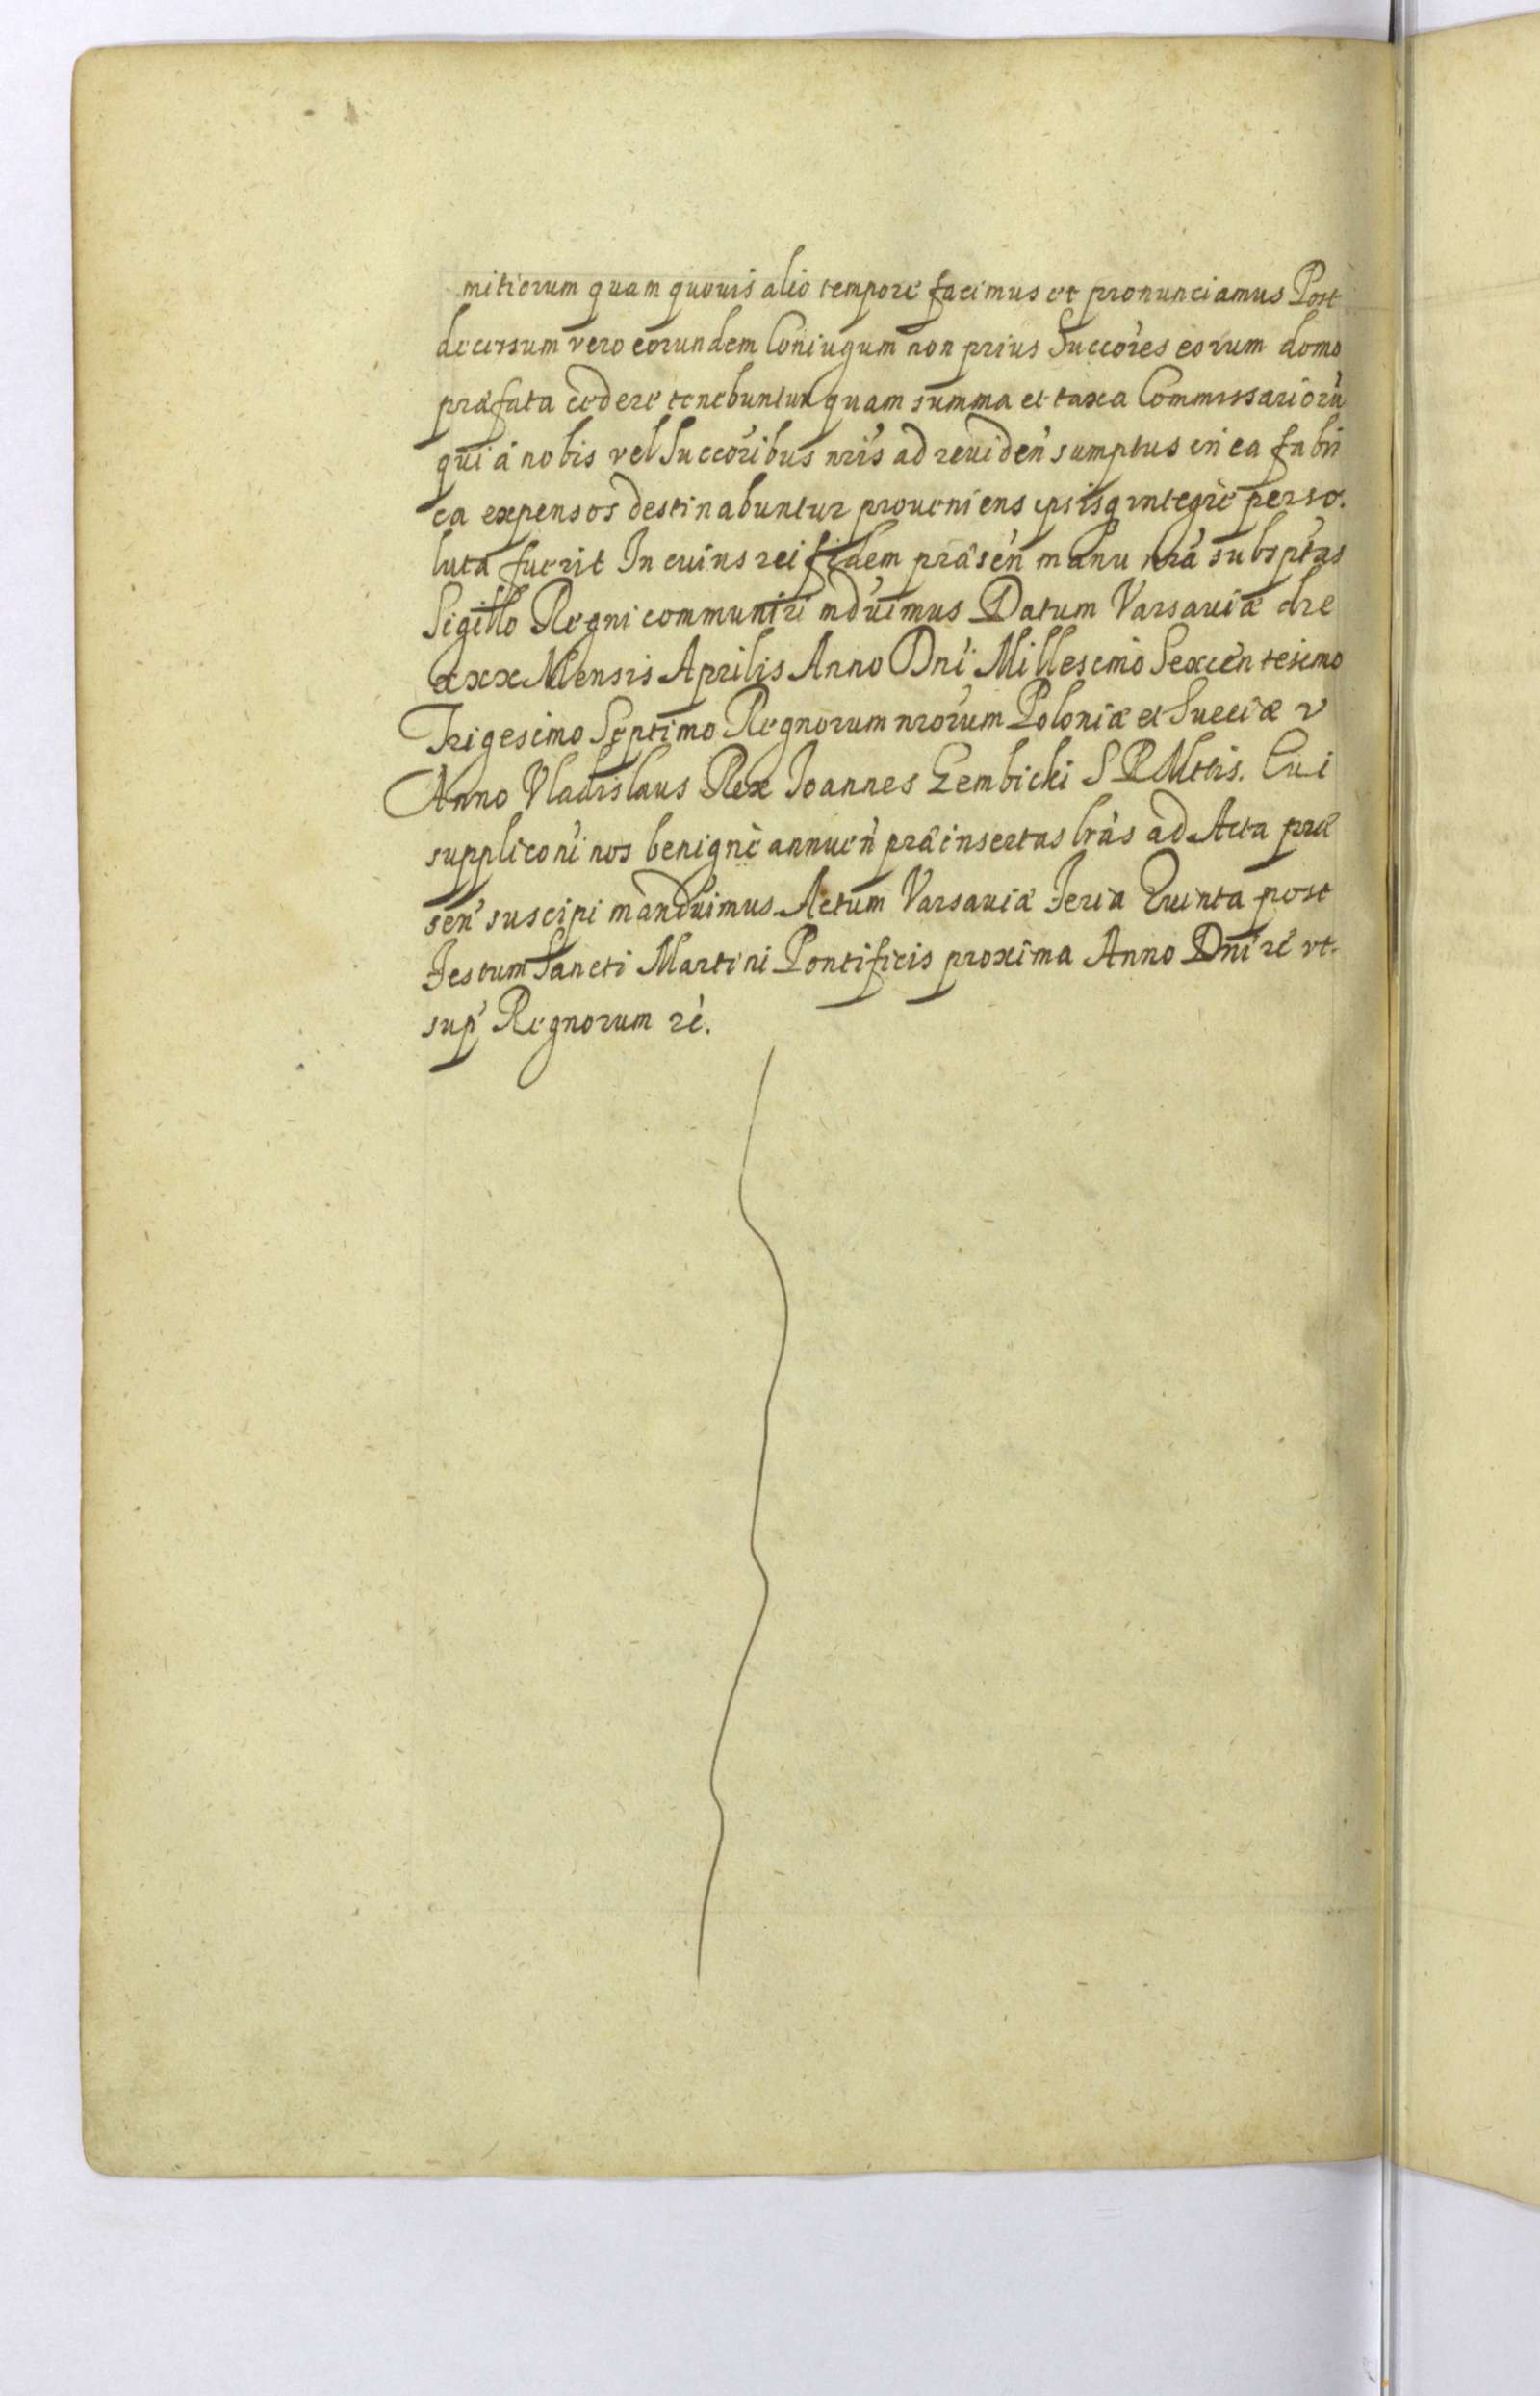 mitiorum quam quouis alio tempore facimus et pronunciamus Post
decessum vero eorundem Coniugum non prius Succ̃ores eorum domo
præfata cedere tenebuntur quam summa et taxa Commissariorũ
qui á nobis vel Succ̃oribus nr̃is ad reuideñ sumptus in ea fabri
ca expensos destinabuntur proueniens ipsisq integrè perso.
luta fuerit In cuius rei fidem præseñ manu nr̃a subsp̃tas
Sigillo Regni communiri mãduimus Datum Varsauiæ die
xxx Mensis Aprilis Anno Dñi Millesimo Sexcentesimo
Trigesimo Septimo Regnorum nr̃orum Poloniæ et Sueciæ v
Anno Vladislaus Rex Joannes Gembicki S R Mttis. Cui
supplicõni nos benignè annueñ præinsertas lrãs ad Acta præ
señ suscipi mandũimus Actum Varsauiæ Feria Quinta post
Festum Sancti Martini Pontificis proxima Anno Dñi rẽ vt.
sup̃ Regnorum rẽ.